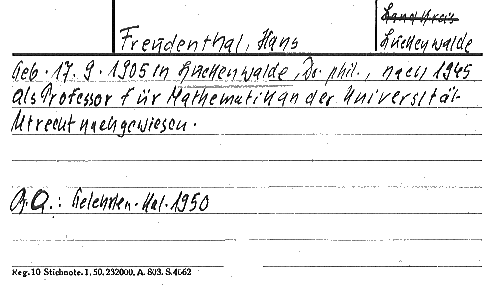 Landkreis
Freudenthal, Hans
Luckenwalde
Geb. 17. 9. 1905 in Luckenwalde, Dr. phil., nach 1945
als Professor für Mathematik an der Universität
Utrecht nachgewiesen.
Q.: Gelehrten-Kal. 1950
Reg. 10 Stichnote. I. 50. 232000. A. 803. S. 4662